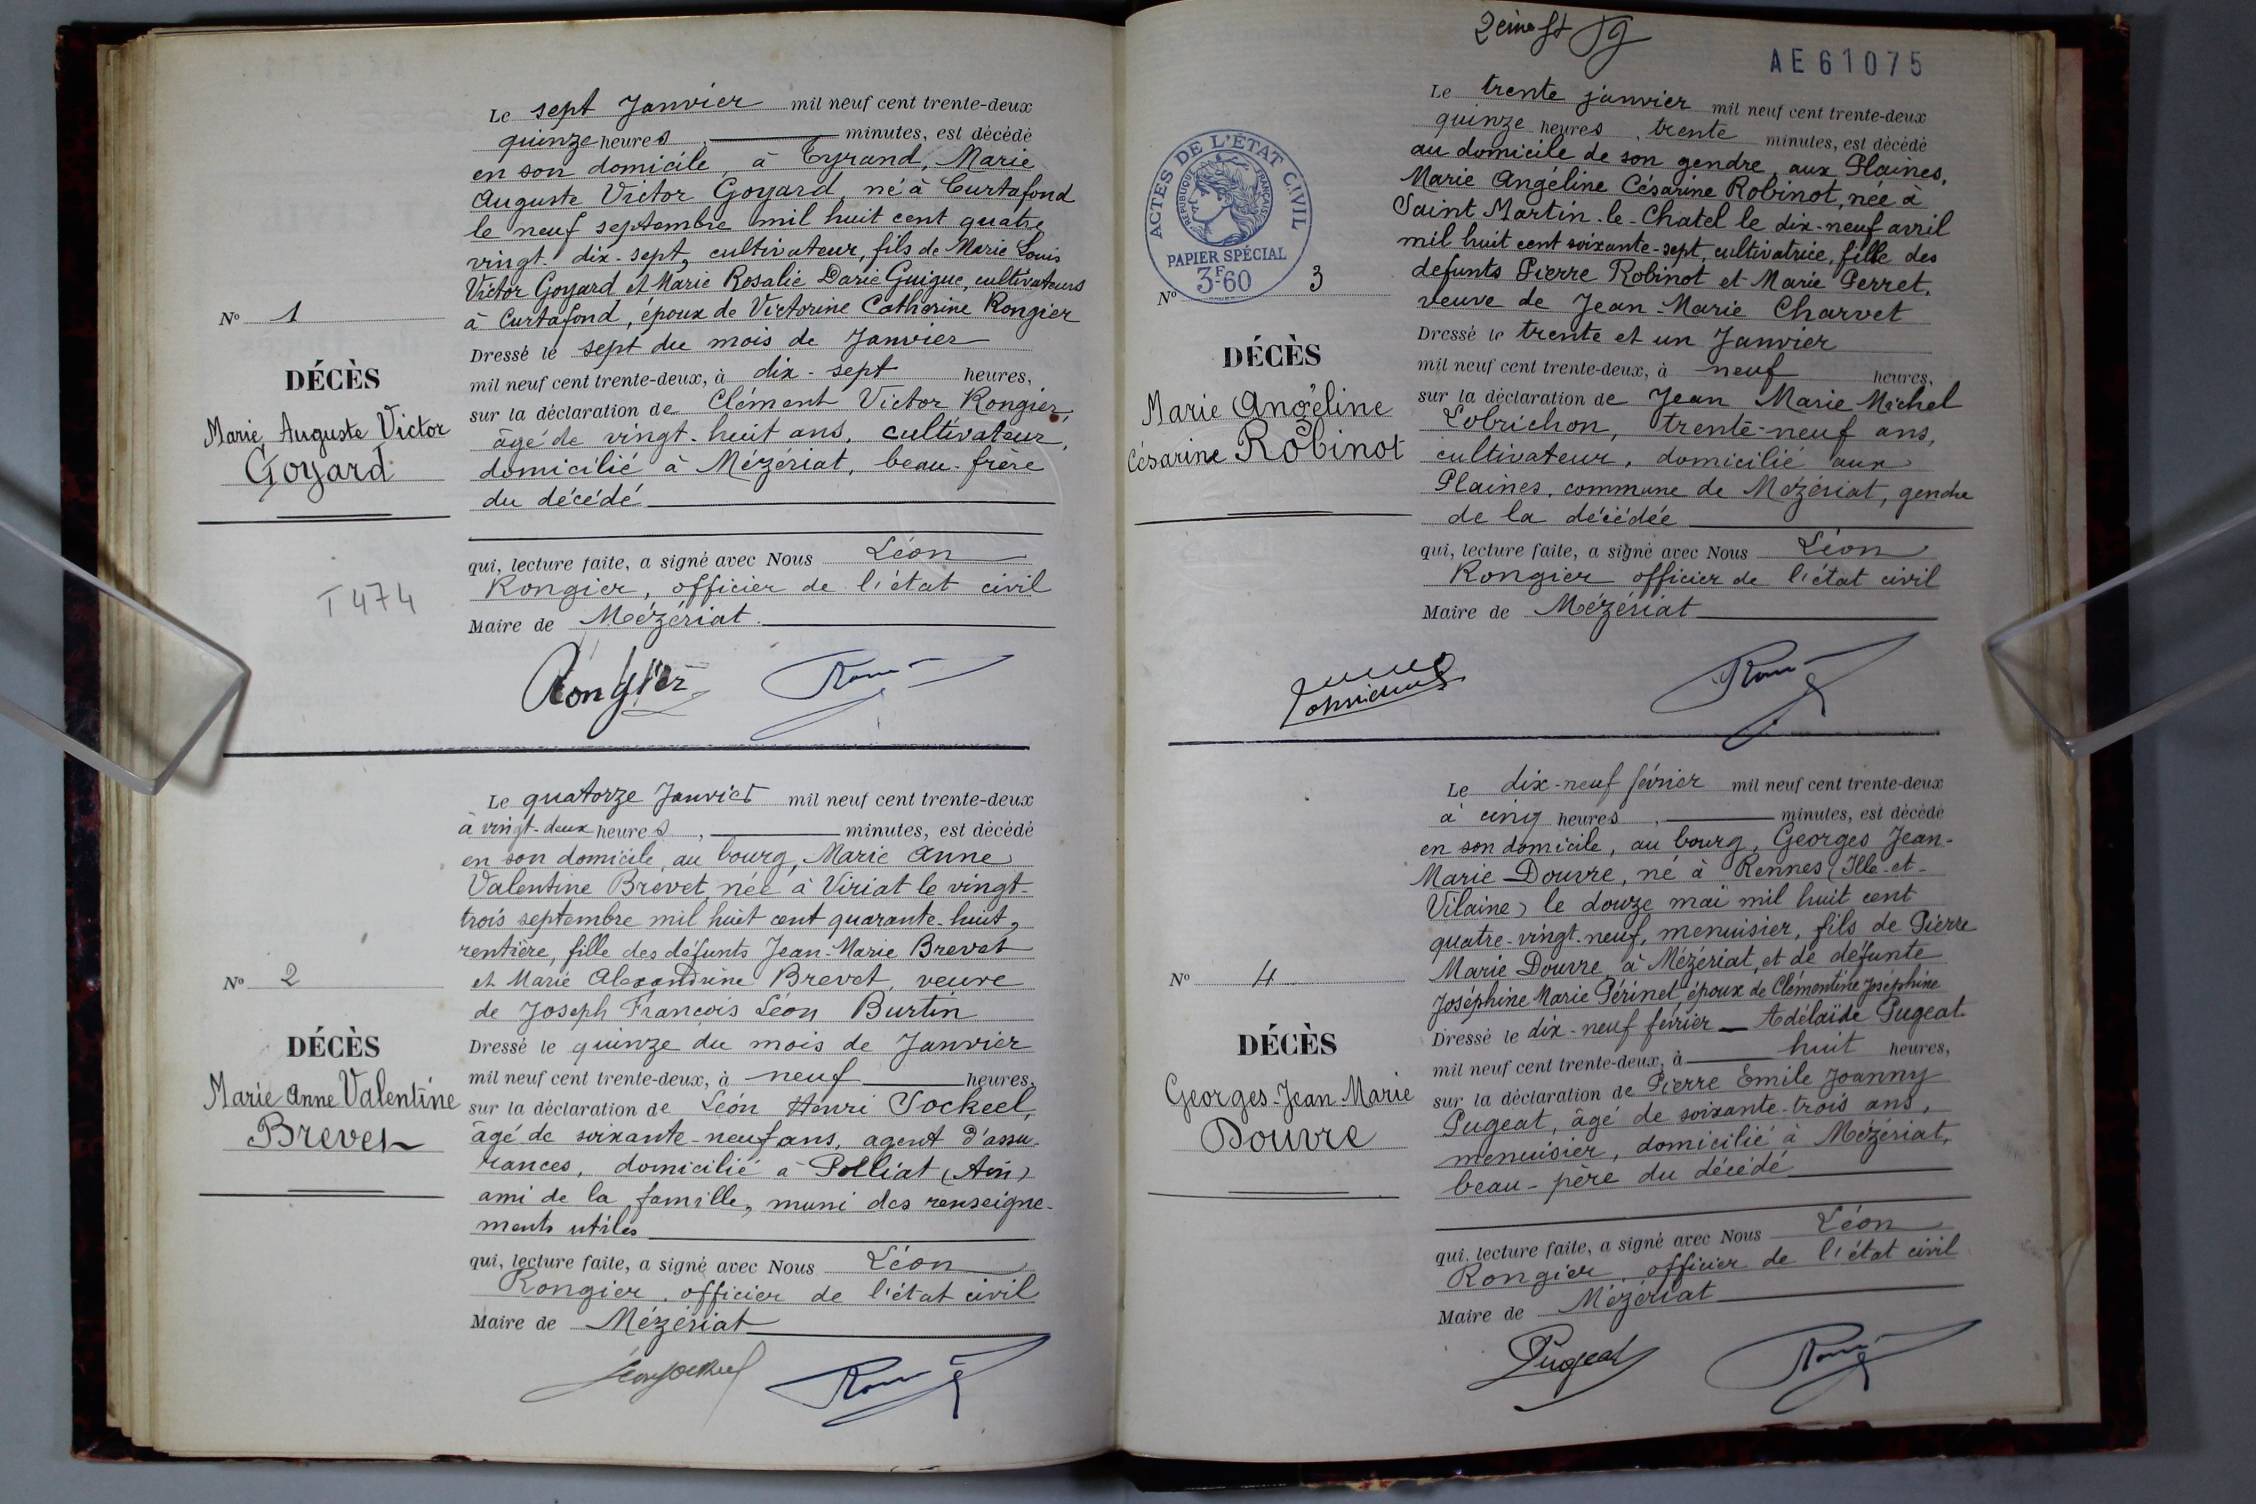 Le sept Janvier mil neuf cent trente-deux
quinze heures, minutes, est décédé
en son domicile, à Tyrand, Marie
Auguste Victor Goyard, né à Curtafond
le neuf septembre mil huit cent quatre
vingt-dix-sept, cultivateur, fils de Marie Louis
Victor Goyard et Marie Rosalie Darie Guigue, cultivateurs
à Curtafond, époux de Victorine Catherine Rongier
Dressé le sept du mois de Janvier
mil neuf cent trente-deux, à dix-sept heures,
sur la déclaration de Clément Victor Rongier,
âgé de vingt-huit ans, cultivateur,
domicilié à Mézériat, beau-frère
du décédé
qui, lecture faite, a signé avec Nous Léon
Rongier, officier de l'état civil
Maire de Mézériat.
Rongier
N° 1
DÉCÈS
Marie Auguste Victor
Goyard
T 474
Le quatorze Janvier mil neuf cent trente-deux
à vingt-deux heures, minutes, est décédé
en son domicile, au bourg, Marie Anne
Valentine Brevet, née à Viriat le vingt-
trois septembre mil huit cent quarante-huit,
rentière, fille des défunts Jean-Marie Brevet
et Marie Alexandrine Brevet, veuve
de Joseph François Léon Burtin
Dressé le quinze du mois de Janvier
mil neuf cent trente-deux, à neuf heures,
sur la déclaration de Léon Henri Sockeel,
âgé de soixante-neuf ans, agent d'assu-
rances, domicilié à Polliat (Ain)
ami de la famille, muni des renseigne-
ments utiles
qui, lecture faite, a signé avec Nous Léon
Rongier, officier de l'état civil
Maire de Mézériat
N° 2
DÉCÈS
Marie Anne Valentine
Brevet
2eime ft
AE61075
Le trente janvier mil neuf cent trente-deux
quinze heures, trente minutes, est décédé
au domicile de son gendre, aux Plaines,
Marie Angéline Césarine Robinot, née à
Saint Martin-le-Chatel le dix-neuf avril
mil huit cent soixante-sept, cultivatrice, fille des
defunts Pierre Robinot et Marie Perret,
veuve de Jean-Marie Charvet
Dressé le trente et un Janvier
mil neuf cent trente-deux, à neuf heures,
sur la déclaration de Jean Marie Michel
Lobrichon, trente-neuf ans,
cultivateur, domicilié aux
Plaines, commune de Mézériat, gendre
de la décédée
qui, lecture faite, a signé avec Nous Léon
Rongier officier de l'état civil
Maire de Mézériat
ACTES DE L'ÉTAT CIVIL
RÉPUBLIQUE FRANÇAISE
PAPIER SPÉCIAL
3F60
N° 3
DÉCÈS
Marie Angéline
Césarine Robinot
Le dix-neuf février mil neuf cent trente-deux
à cinq heures, minutes, est décédé
en son domicile, au bourg, Georges Jean-
Marie Douvre, né à Rennes (Ille-et-
Vilaine) le douze mai mil huit cent
quatre-vingt-neuf, menuisier, fils de Pierre
Marie Douvre, à Mézériat, et de défunte
Joséphine Marie Périnet, époux de Clémentine Joséphine
Dressé le dix-neuf février Adélaïde Pugeat
mil neuf cent trente-deux, à huit heures,
sur la déclaration de Pierre Emile Joanny
Pugeat, âgé de soixante-trois ans,
menuisier, domicilié à Mézériat,
beau-père du décédé
qui, lecture faite, a signé avec Nous Léon
Rongier, officier de l'état civil
Maire de Mézériat
Pugeat
N° 4
DÉCÈS
Georges-Jean-Marie
Douvre